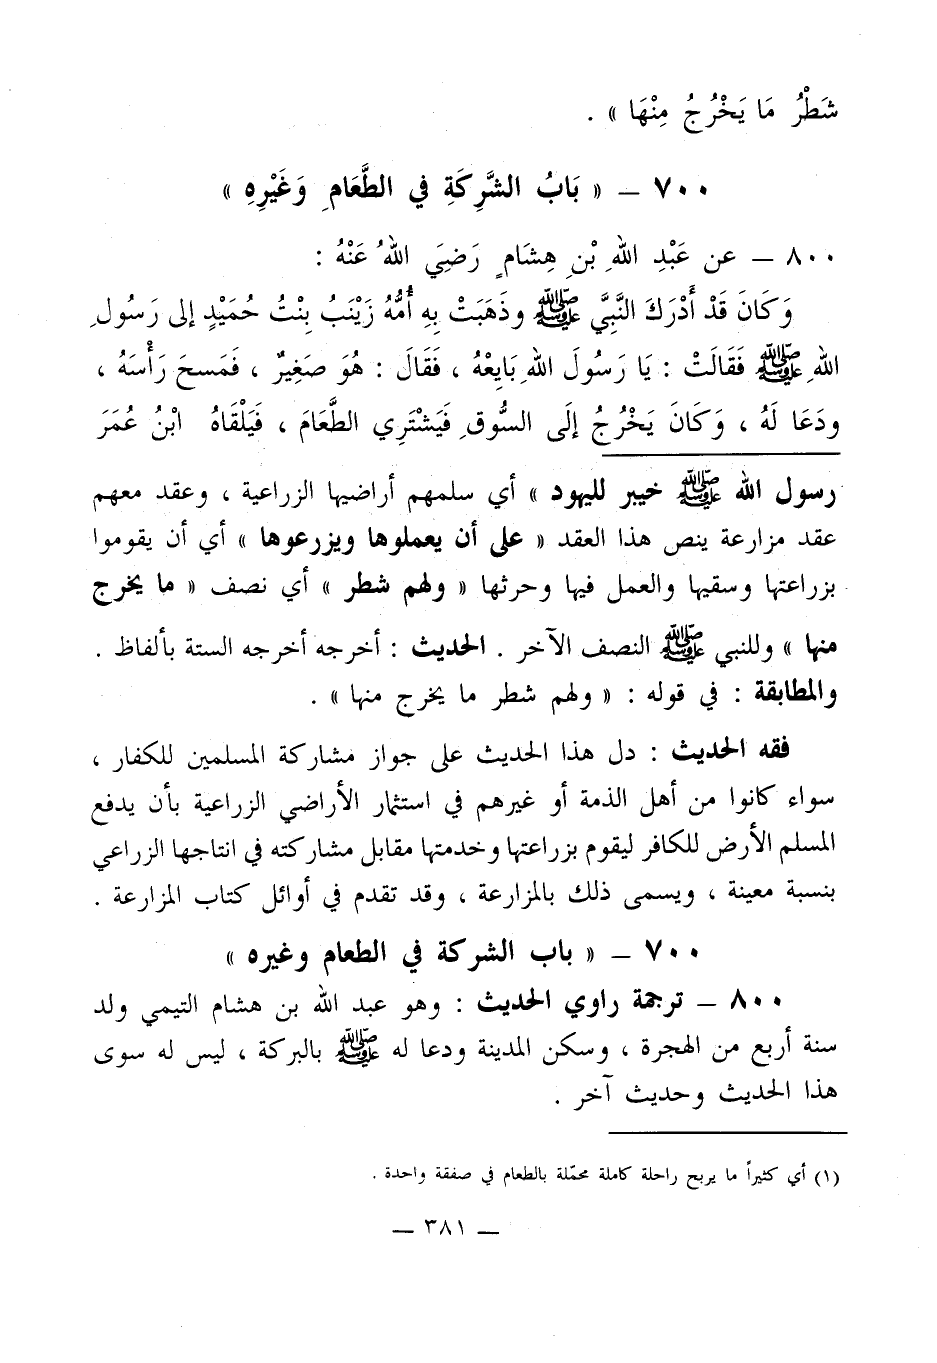 شَطْرُ مَا يَخْرُجُ مِنْهَا » .
٧٠٠ – « بَابُ الشَّرِكَةِ في الطَّعَامِ وَغَيْرِهِ »
٨٠٠ – عن عَبْدِ اللهِ بْنِ هِشَامٍ رَضِيَ اللهُ عَنْهُ :
وَكَانَ قَدْ أَدْرَكَ النَّبِيَّ ﷺ وذَهَبَتْ بِهِ أُمُّهُ زَيْنَبُ بِنْتُ حُمَيْدٍ إلى رَسُولِ
اللهِ ﷺ فَقَالَتْ : يَا رَسُولَ اللهِ بَايِعْهُ ، فَقَالَ : هُوَ صَغِيرٌ ، فَمَسحَ رَأْسَهُ ،
ودَعَا لَهُ ، وَكَانَ يَخْرُجُ إِلَى السُّوقِ فَيَشْتَرِي الطَّعَامَ ، فَيَلْقَاهُ ابْنُ عُمَرَ
رسول الله ﷺ خيبر لليهود » أي سلمهم أراضيها الزراعية ، وعقد معهم
عقد مزارعة ينص هذا العقد « على أن يعملوها ويزرعوها » أي أن يقوموا
بزراعتها وسقيها والعمل فيها وحرثها « ولهم شطر » أي نصف « ما يخرج
منها » وللنبي ﷺ النصف الآخر . الحديث : أخرجه أخرجه الستة بألفاظ .
والمطابقة : في قوله : « ولهم شطر ما يخرج منها » .
فقه الحديث : دل هذا الحديث على جواز مشاركة المسلمين للكفار ،
سواء كانوا من أهل الذمة أو غيرهم في استثمار الأراضي الزراعية بأن يدفع
المسلم الأرض للكافر ليقوم بزراعتها وخدمتها مقابل مشاركته في انتاجها الزراعي
بنسبة معينة ، ويسمى ذلك بالمزارعة ، وقد تقدم في أوائل كتاب المزارعة .
٧٠٠ – « باب الشركة في الطعام وغيره »
٨٠٠ – ترجمة راوي الحديث : وهو عبد الله بن هشام التيمي ولد
سنة أربع من الهجرة ، وسكن المدينة ودعا له ﷺ بالبركة ، ليس له سوى
هذا الحديث وحديث آخر .
(١) أي كثيراً ما يربح راحلة كاملة محمّلة بالطعام في صفقة واحدة .
– ٣٨١ –